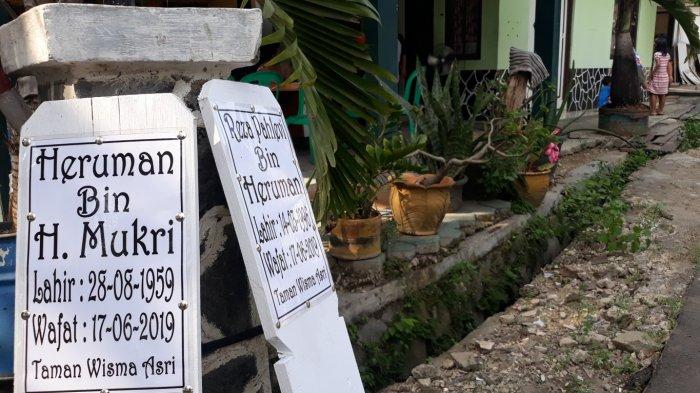 Heruman
Bin
H. Mukri
Lahir : 28-08-1959
Wafat : 17-06-2019
Taman Wisma Asri
Reza Pahlevi
Bin
Heruman
Lahir:
Wafat: 17-06-2019
Taman Wisma Asri